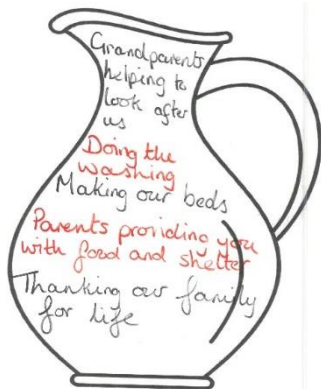 Grandparents
helping to
look after
us
Doing the
washing
Making our beds
Parents providing you
with food and shelter
Thanking our family
for life